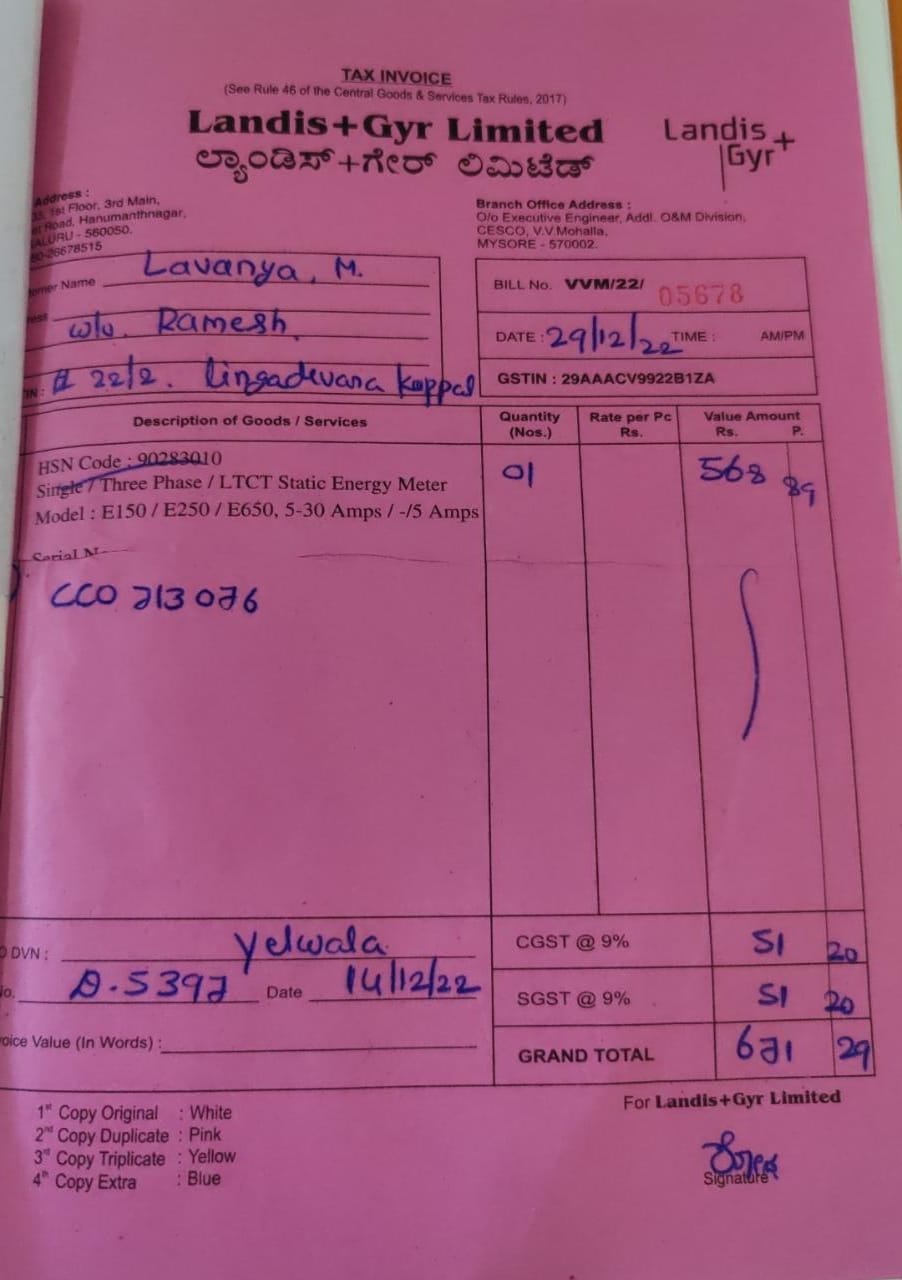 TAX INVOICE
(See Rule 46 of the Central Goods & Services Tax Rules, 2017)
Landis+Gyr Limited
ಲ್ಯಾಂಡಿಸ್+ಗೇರ್ ಲಿಮಿಟೆಡ್
Landis
Gyr+
Address :
1st Floor, 3rd Main,
Road, Hanumanthnagar,
ALURU - 560050.
26678515
Branch Office Address :
O/o Executive Engineer, Addl. O&M Division,
CESCO, V.V.Mohalla,
MYSORE - 570002.
omer Name Lavanya, M.
ress w/o. Ramesh
IN : # 22/2. Lingadevara Koppal
BILL No. VVM/22/ 05678
DATE : 29/12/22 TIME : AM/PM
GSTIN : 29AAACV9922B1ZA
Description of Goods / Services Quantity (Nos.) Rate per Pc Rs. Value Amount Rs. P.
HSN Code : 90283010 01 568 89
Single / Three Phase / LTCT Static Energy Meter
Model : E150 / E250 / E650, 5-30 Amps / -/5 Amps
Serial N
CCO 713076
DVN : Yelwala CGST @ 9% 51 20
No. D.5397 Date 14/12/22 SGST @ 9% 51 20
oice Value (In Words) : GRAND TOTAL 671 29
1st Copy Original : White
2nd Copy Duplicate : Pink
3rd Copy Triplicate : Yellow
4th Copy Extra : Blue
For Landis+Gyr Limited
Signature